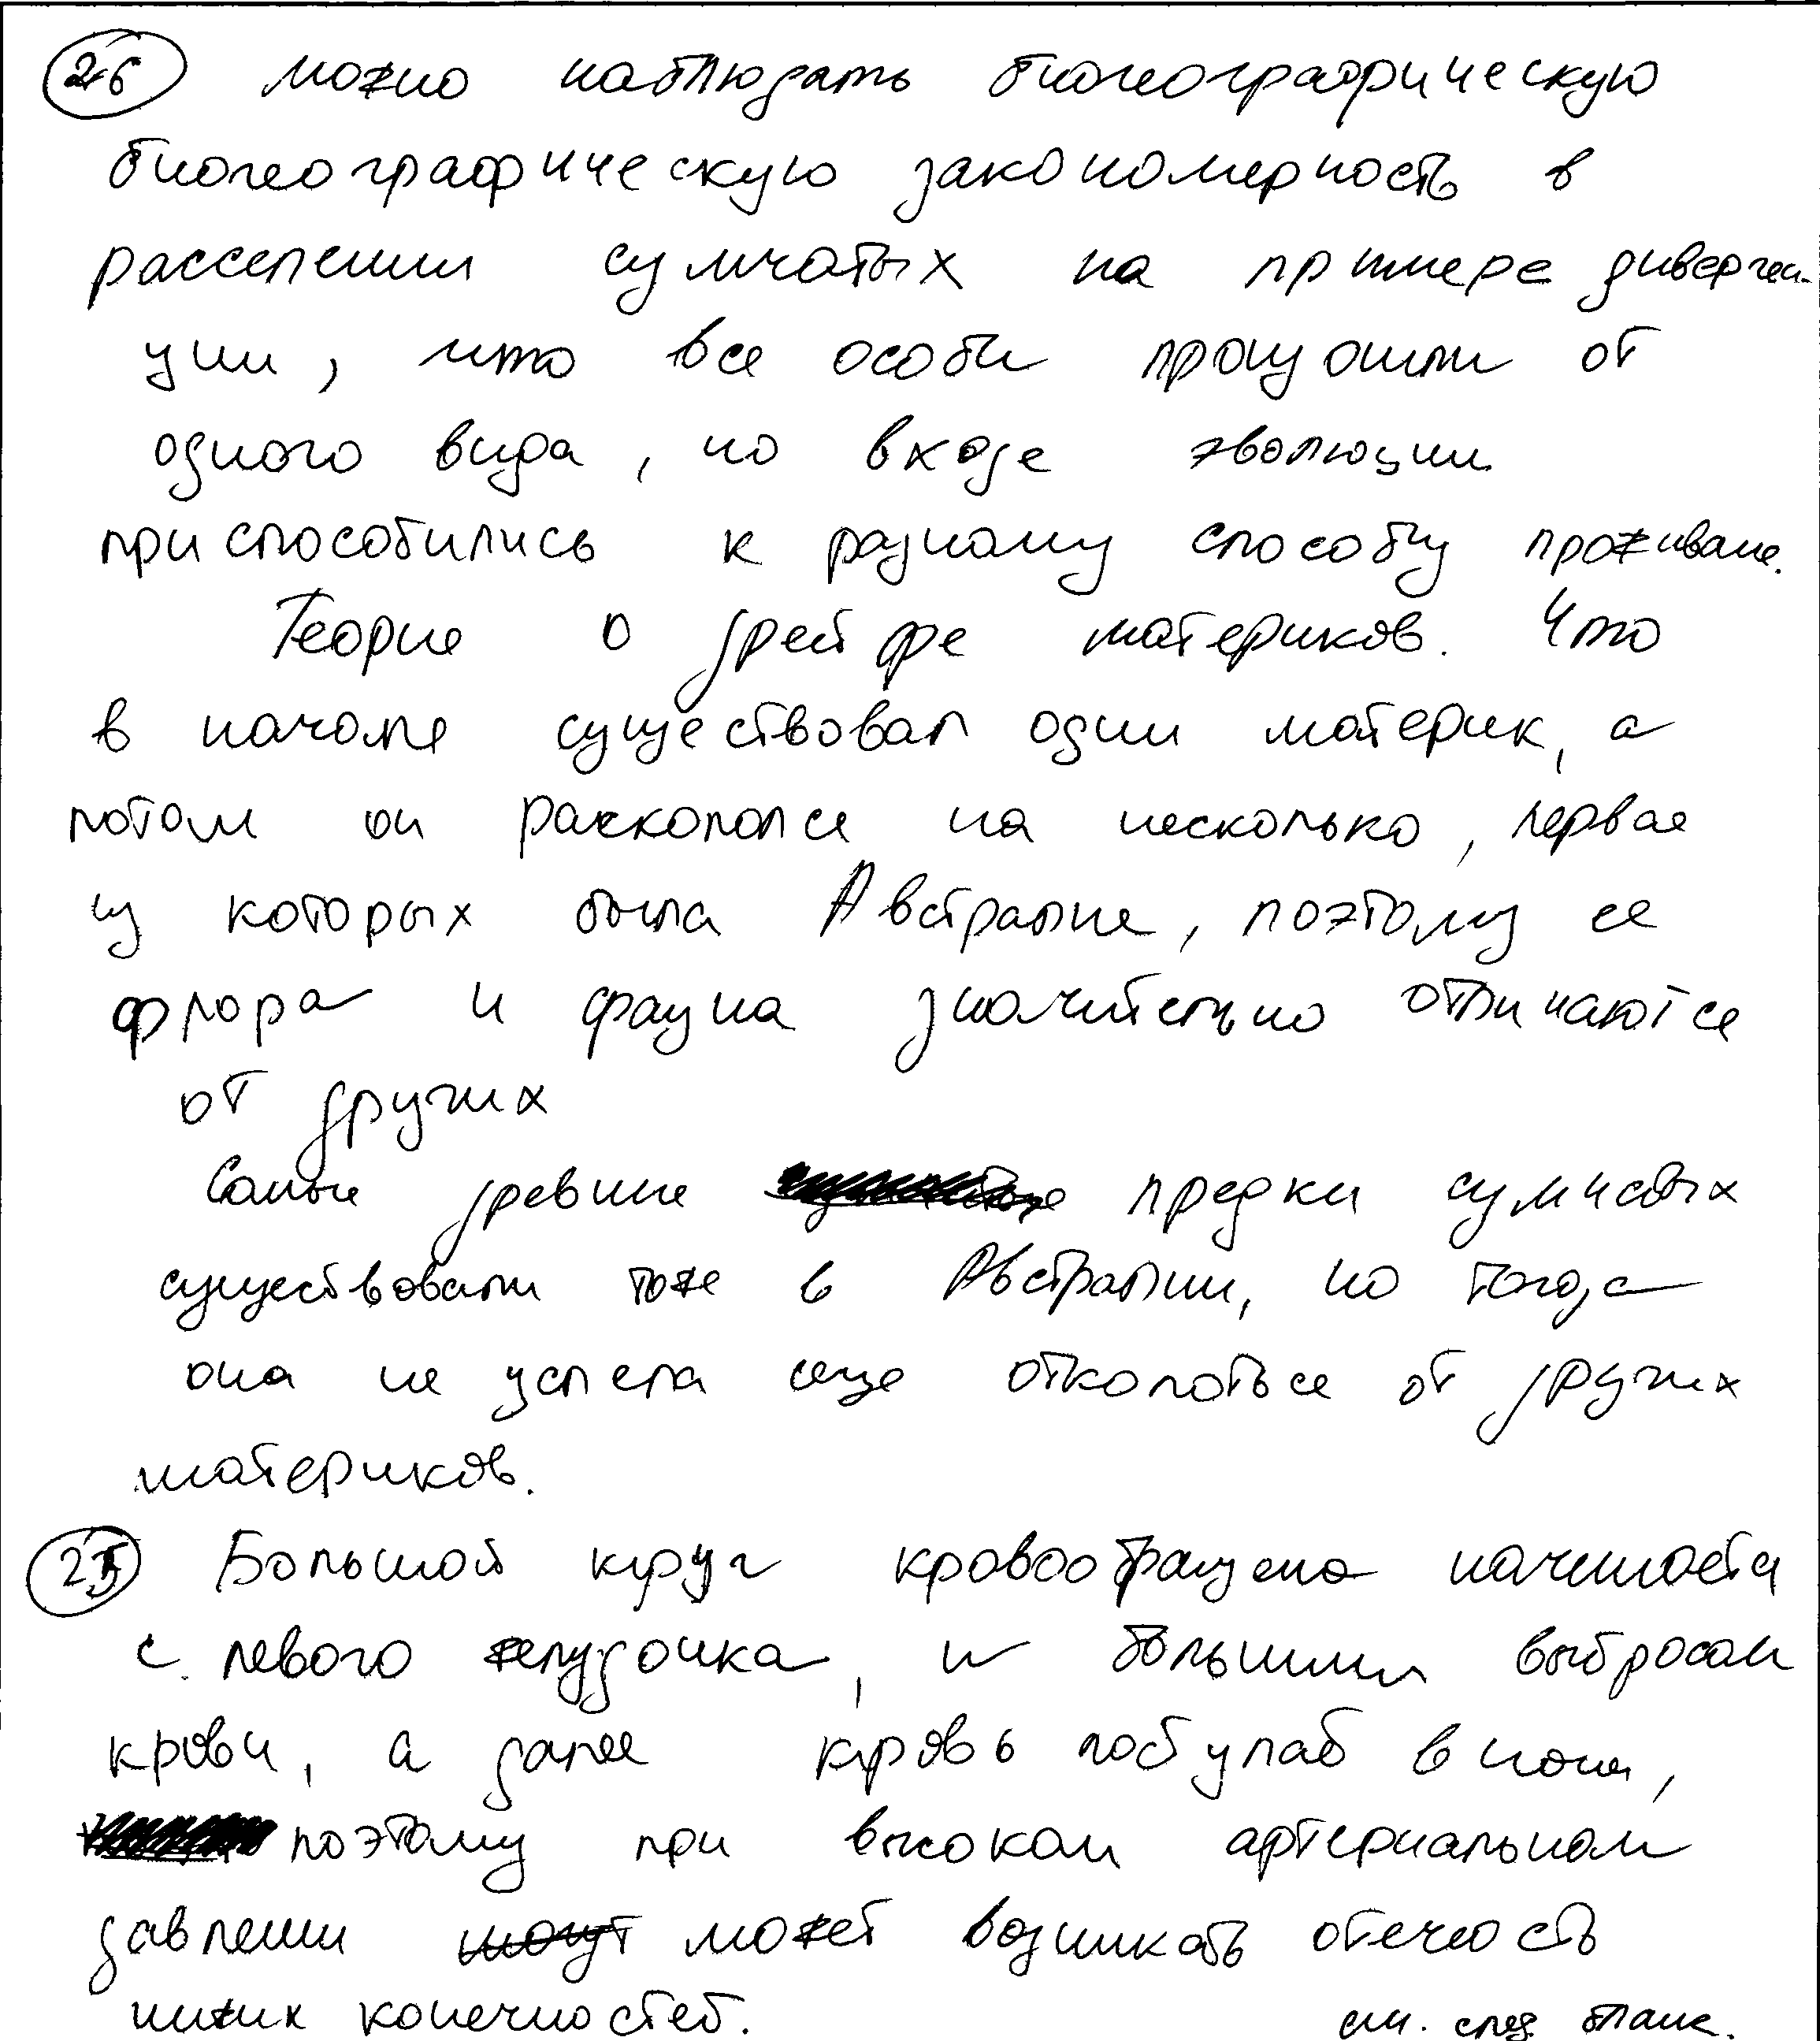 26 можно наблюдать биогеографическую
биогеографическую закономерность в
расселении сумчатых на примере диверген-
ции, что все особи произошли от
одного вида, но в ходе эволюции
приспособились к разному способу проживание.
Теория о дрейфе материков. Что
в начале существовал один материк, а
потом он раскололся на несколько, первая
из которых была Австралия, поэтому ее
флора и фауна значительно отличаются
от других
Самые древние предки сумчатых
существовали тоже в Австралии, но тогда
она не успела еще отколоться от других
материков.
25 Большой круг кровообращения начинается
с левого желудочка, и большими выбросами
крови, а далее кровь поступает в ноги,
поэтому при высоком артериальном
давлении могут может возникать отечность
нижних конечностей.
см. след. бланк.